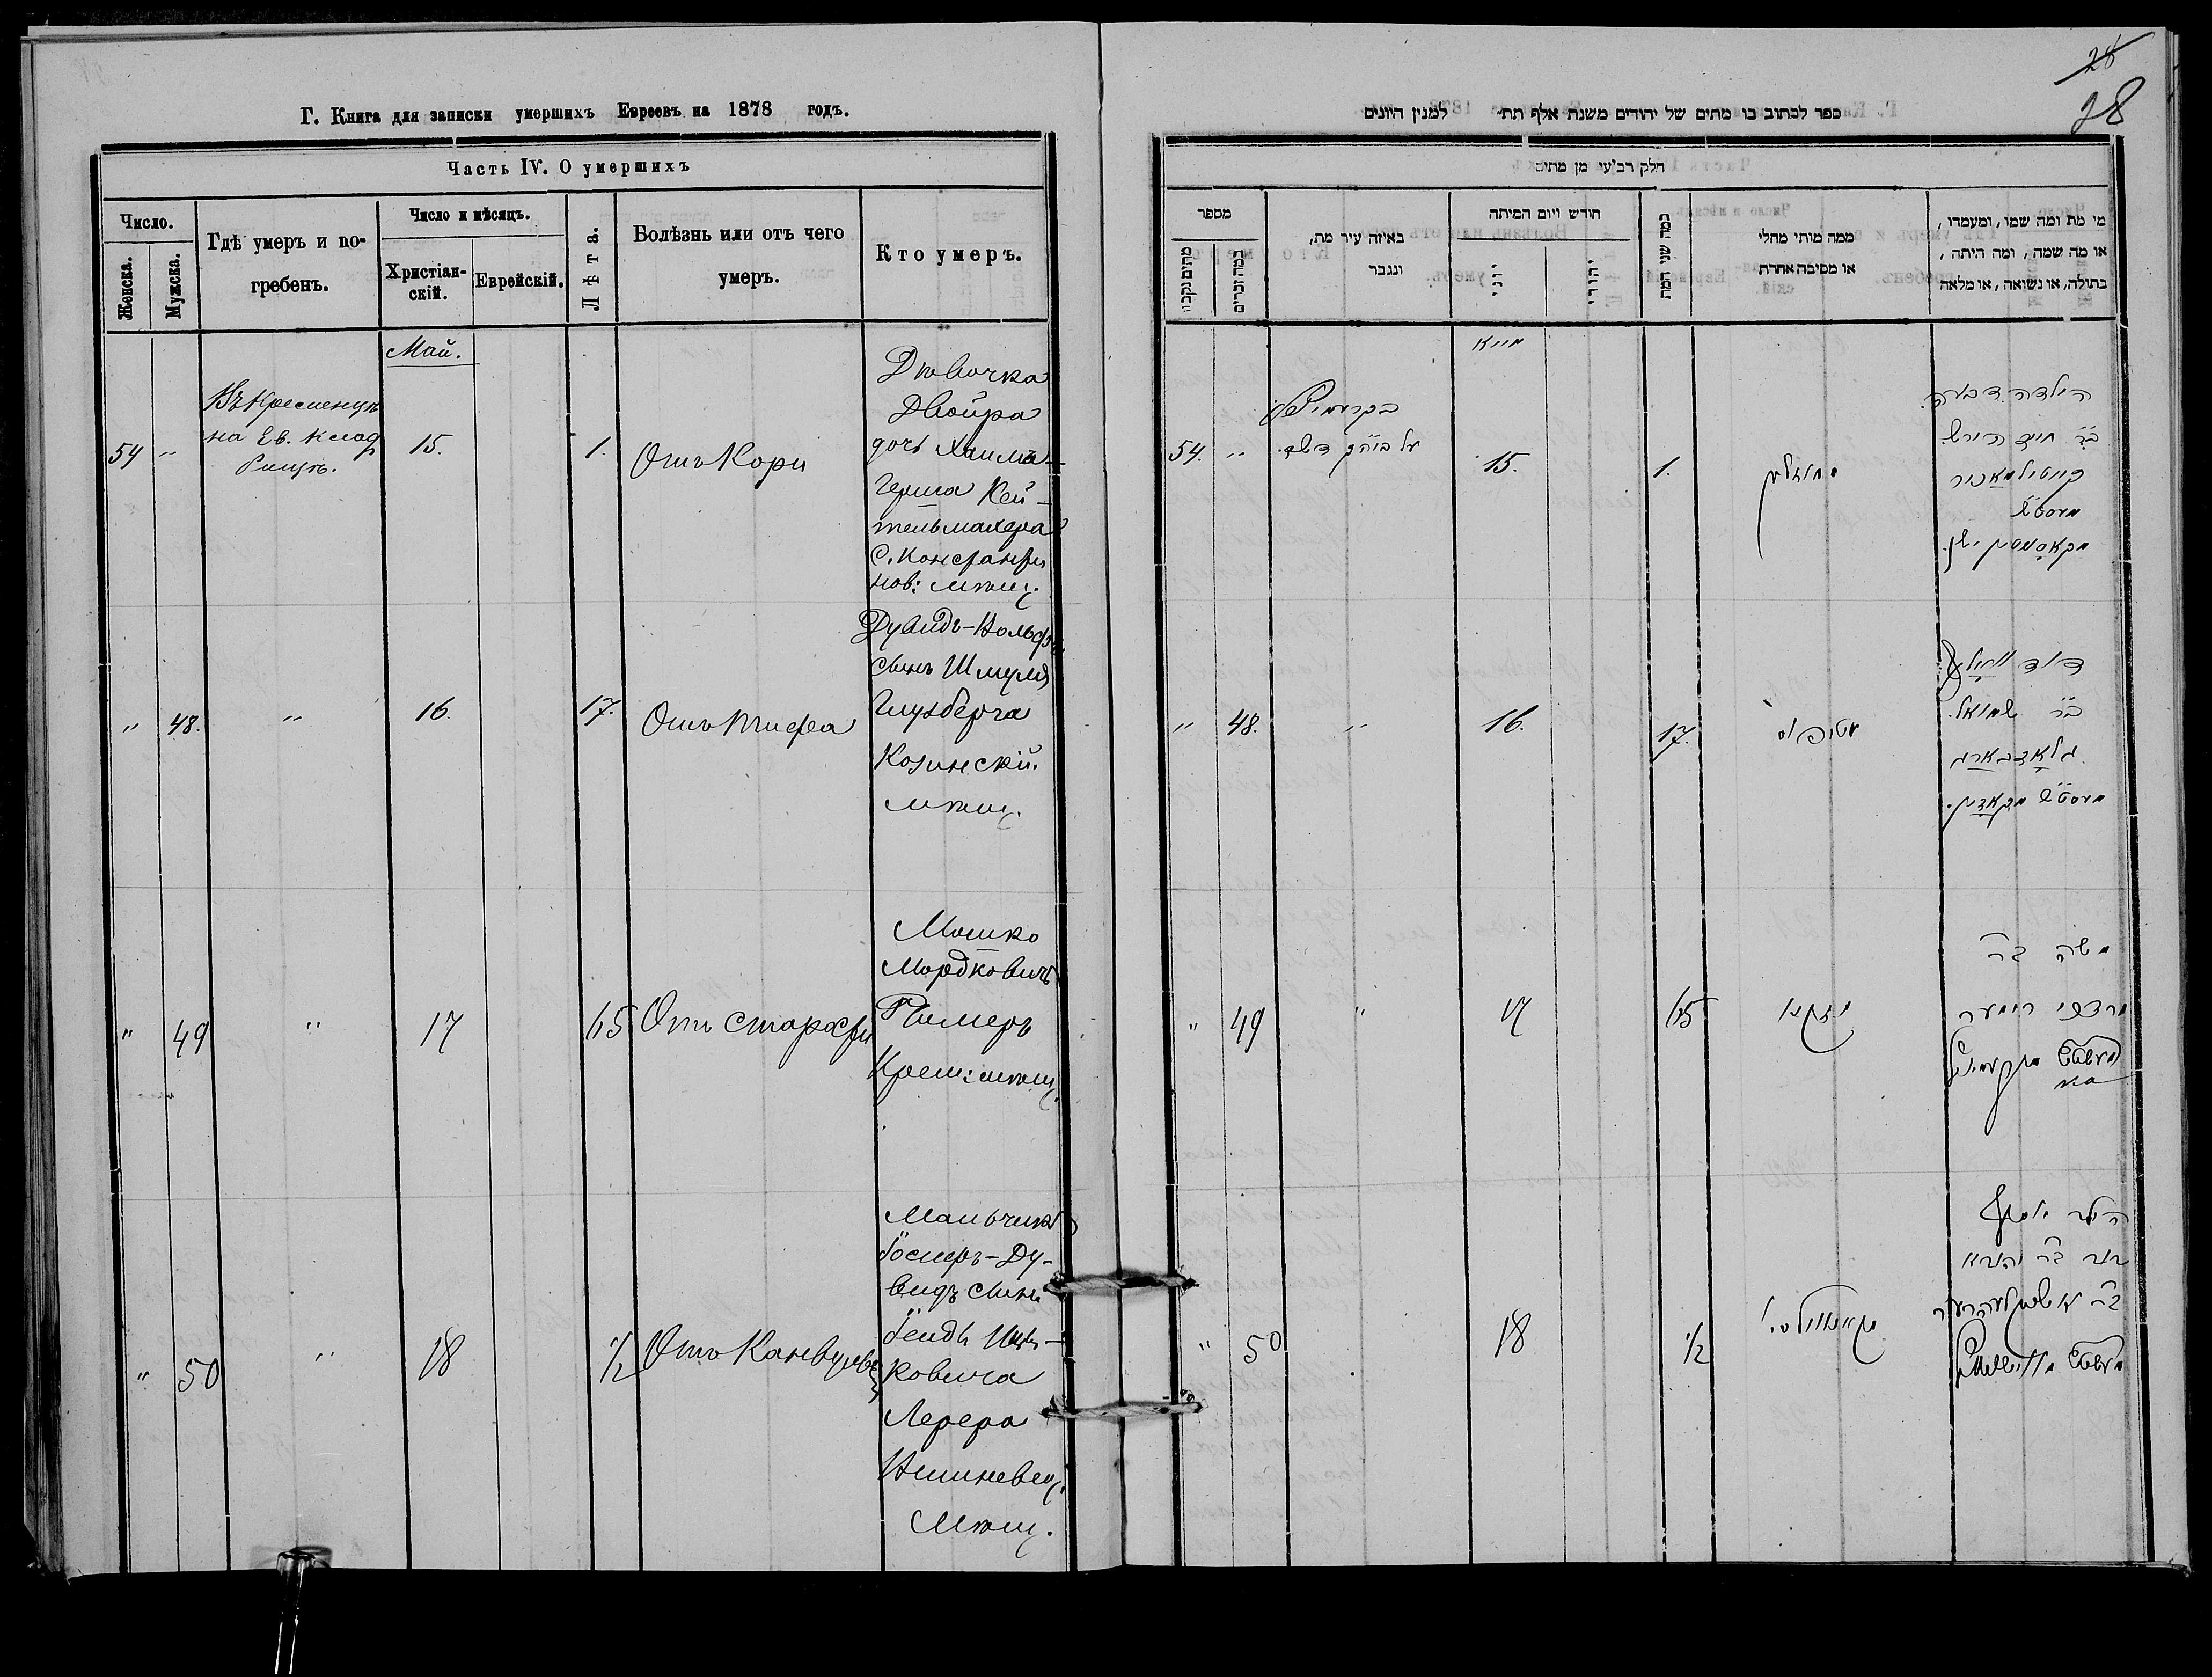 28
28
Г. Книга для записки умершихъ Евреевъ на 1878 годъ.
Часть IV. О умершихъ
Число.
Женска.
Мужска.
Гдѣ умеръ и по-
гребенъ.
Число и мѣсяцъ.
Христіан-
скій.
Еврейскій.
Лѣта.
Болѣзнь или отъ чего
умеръ.
Кто умеръ.
Май.
54 "
Въ Кременцѣ
на Ев. клад
бищѣ.
15.
1.
Отъ Кори
Дѣвочка
Двойра
дочь Хаима-
Герша Кей-
тельмахера
С. Константи
нов: мѣщ.
" 48. " 16. 17. Отъ тифа
Дувидъ-Вольфъ
сынъ Шмуля
Глузберга
Козинскій
мѣщ.
" 49 " 17 65 Отъ старости
Мошко
Мордковичъ
Ример
Крем: мѣщ.
" 50 " 18 1/2 Отъ Канвульс
Мальчикъ
Іосифъ-Ду-
видъ сынъ
Іейды Иць-
ковича
Лерера
Вишневец.
Мѣщ.
ספר לכתוב בו מתים של יהודים משנת אלף תת״ למנין היונים
חלק רב'עי מן מתים
מספר
באיזה עיר מת,
ונגבר
חודש ויום המיתה
יוני
יהודי
כמה שני המת
ממה מותי מחלי
או מסיבה אחרת
מי מת ומה שמו, ומעמדו,
או מה שמה, ומה היתה,
בתולה, או נשואה, או מלאה
מייא
54. "
15.
1.
הילדה דבורה
ב״ר חיים הירש
" 48. " 16. 17.
דוד וואלף
ב״ר שמואל
גלאזבארג
" 49 " 17 65
משה ב״ר
מרדכי רימער
" 50 18 1/2
הילד יוסף
דוד ב״ר יהודא